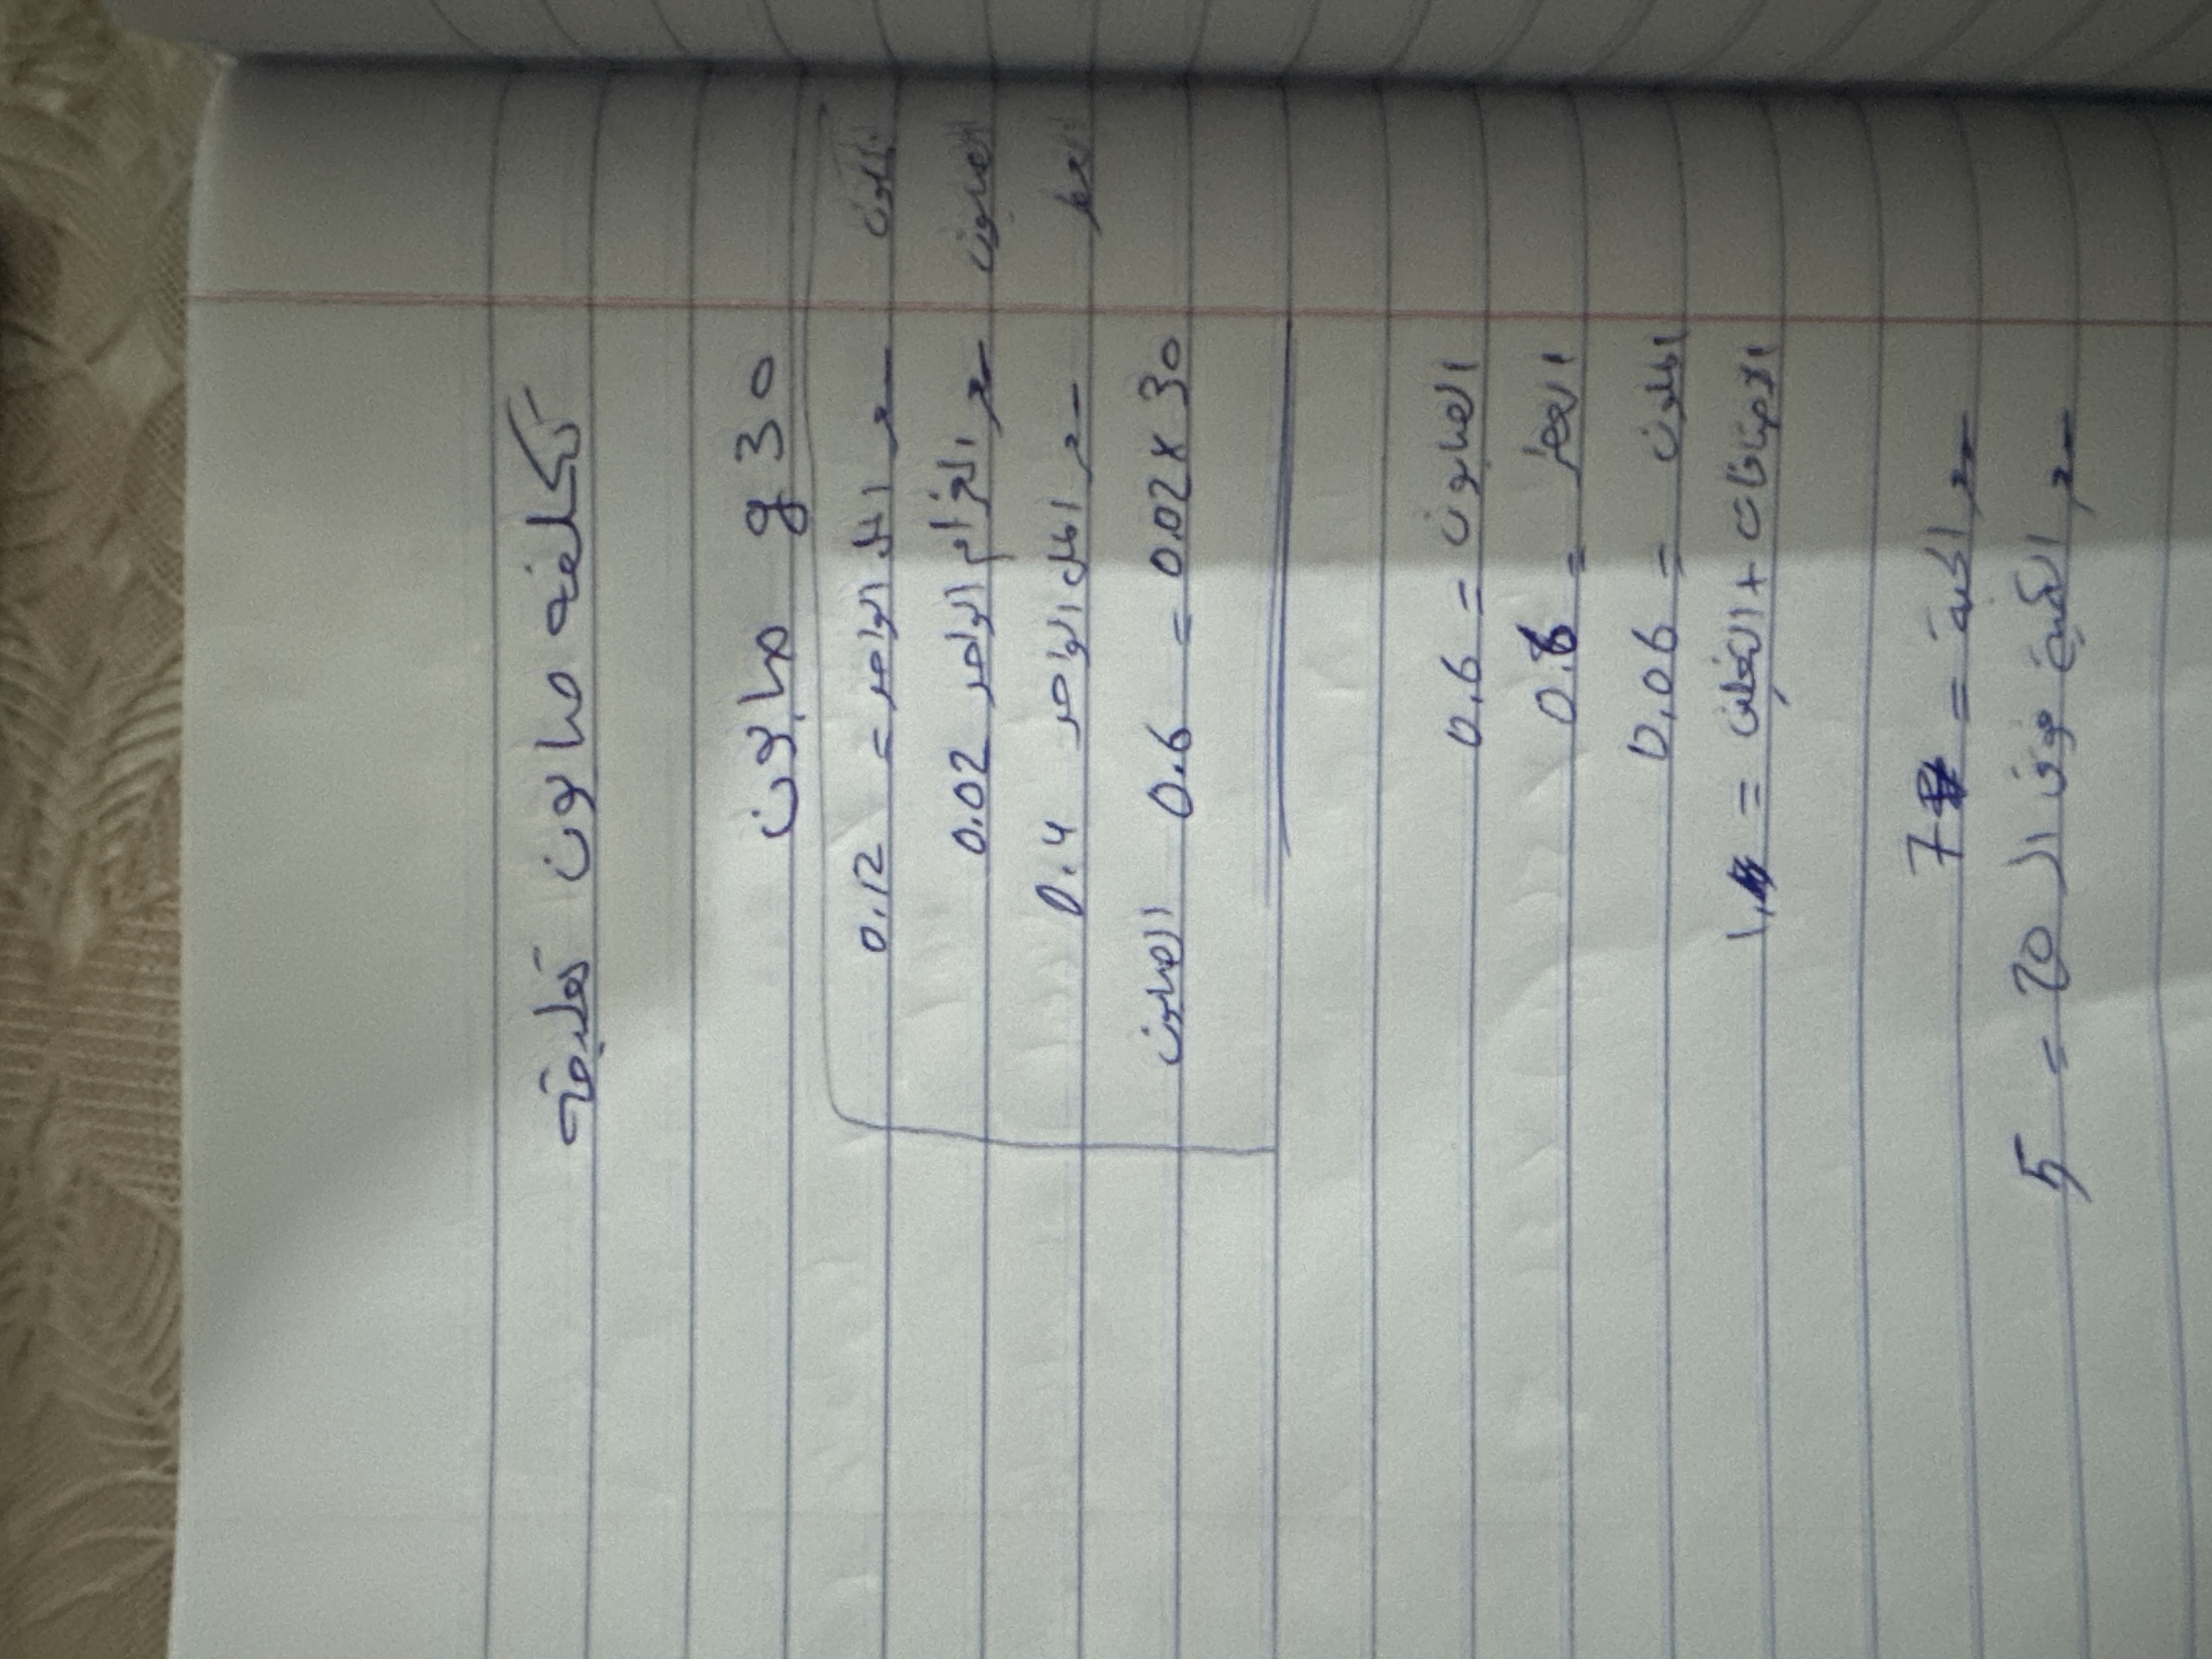 تكلفه صابون تعليقة
صابون g 30
اللون سعر المل الواحد = 0.12
الصابون سعر الغرام الواحد 0.02
العطر سعر المل الواحد 0.4
30 x 0.02 = 0.6 الصابون
الصابون = 0.6
العطر = 0.8
اللون = 0.06
الاضافات + التغليف = 1,
سعر الحبة = 7
سعر الكمية فوق ال 20 = 5